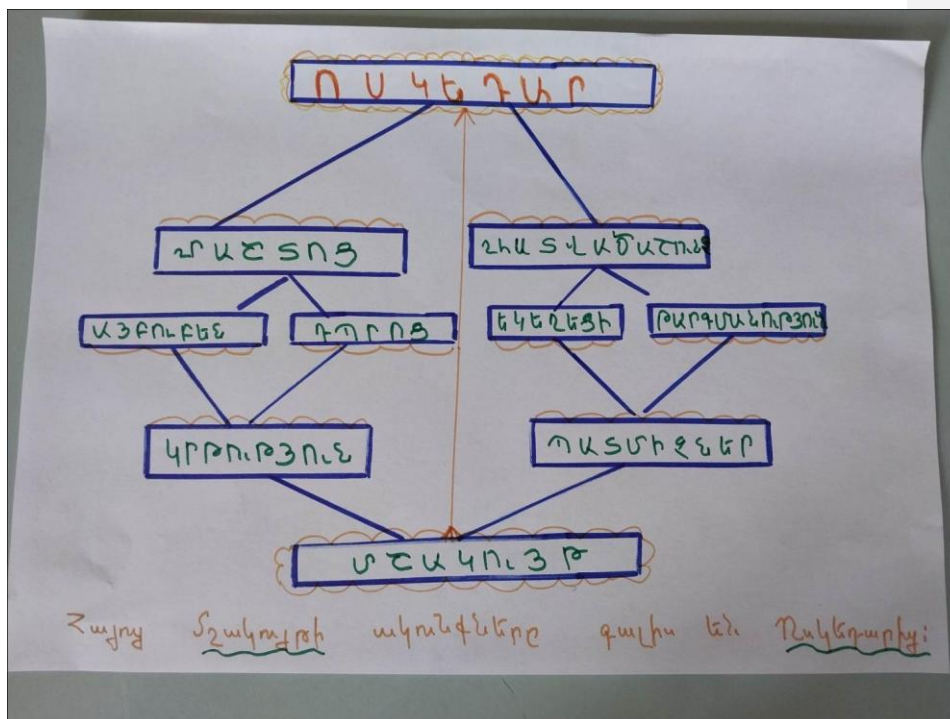 ՈՍԿԵԴԱՐ
ՄԱՇՏՈՑ ԱՍՏՎԱԾԱՇՈՒՆՉ
ԱՅԲՈւԲԵՆ ԴՊՐՈՑ ԵԿԵՂԵՑԻ ԹԱՐԳՄԱՆՈՒԹՅՈՒՆ
ԿՐԹՈւԹՅՈւՆ ՊԱՏՄԻՉՆԵՐ
ՄՇԱԿՈւՅԹ
Հայոց մշակույթի ակունքները գալիս են Ոսկեդարից: